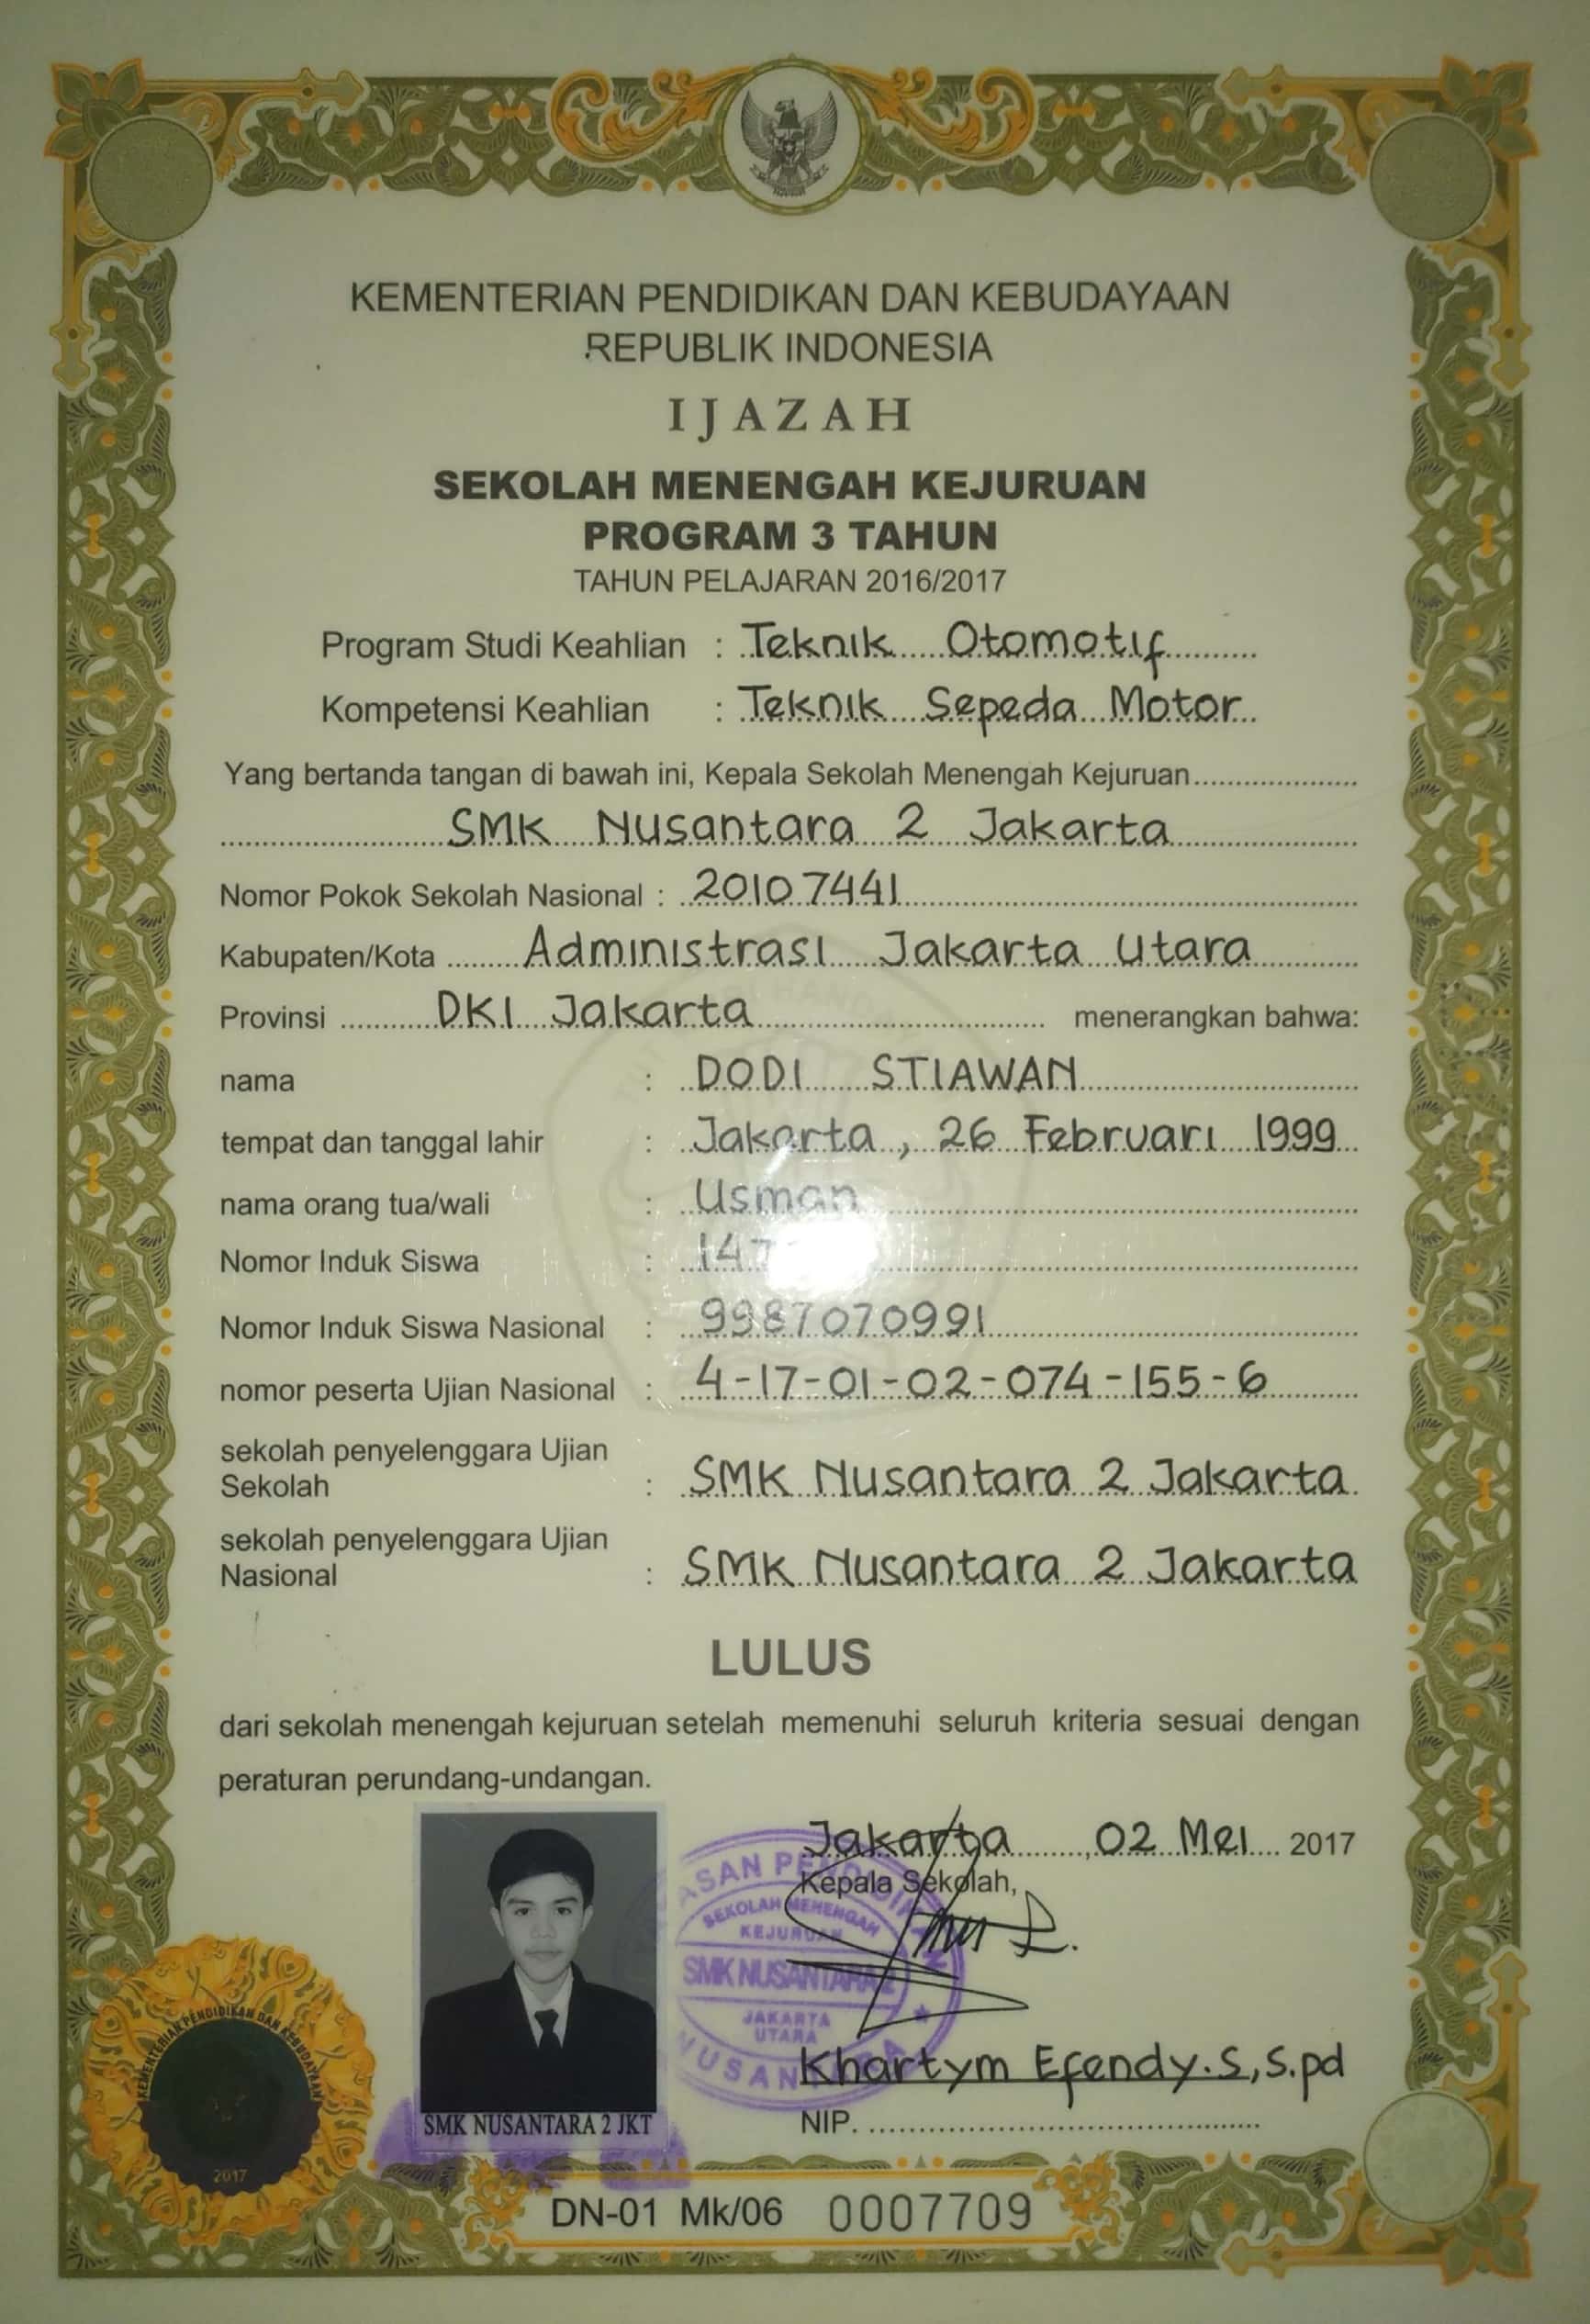 KEMENTERIAN PENDIDIKAN DAN KEBUDAYAAN
REPUBLIK INDONESIA
IJAZAH
SEKOLAH MENENGAH KEJURUAN
PROGRAM 3 TAHUN
TAHUN PELAJARAN 2016/2017
Program Studi Keahlian : Teknik Otomotif
Kompetensi Keahlian : Teknik Sepeda Motor
Yang bertanda tangan di bawah ini, Kepala Sekolah Menengah Kejuruan
SMK Nusantara 2 Jakarta
Nomor Pokok Sekolah Nasional : 20107441
Kabupaten/Kota Administrasi Jakarta Utara
Provinsi DKI Jakarta menerangkan bahwa:
nama : DODI STIAWAN
tempat dan tanggal lahir : Jakarta, 26 Februari 1999
nama orang tua/wali : Usman
Nomor Induk Siswa :
Nomor Induk Siswa Nasional : 9987070991
nomor peserta Ujian Nasional : 4-17-01-02-074-155-6
sekolah penyelenggara Ujian
Sekolah : SMK Nusantara 2 Jakarta
sekolah penyelenggara Ujian
Nasional : SMK Nusantara 2 Jakarta
LULUS
dari sekolah menengah kejuruan setelah memenuhi seluruh kriteria sesuai dengan
peraturan perundang-undangan.
Jakarta, 02 Mei 2017
Kepala Sekolah,
SEKOLAH MENENGAH
KEJURUAN
SMK NUSANTARA 2
JAKARTA
UTARA
NUSANTARA
Khartym Efendy.S, S.pd
NIP.
SMK NUSANTARA 2 JKT
KEMENTERIAN PENDIDIKAN DAN KEBUDAYAAN
2017
DN-01 Mk/06 0007709